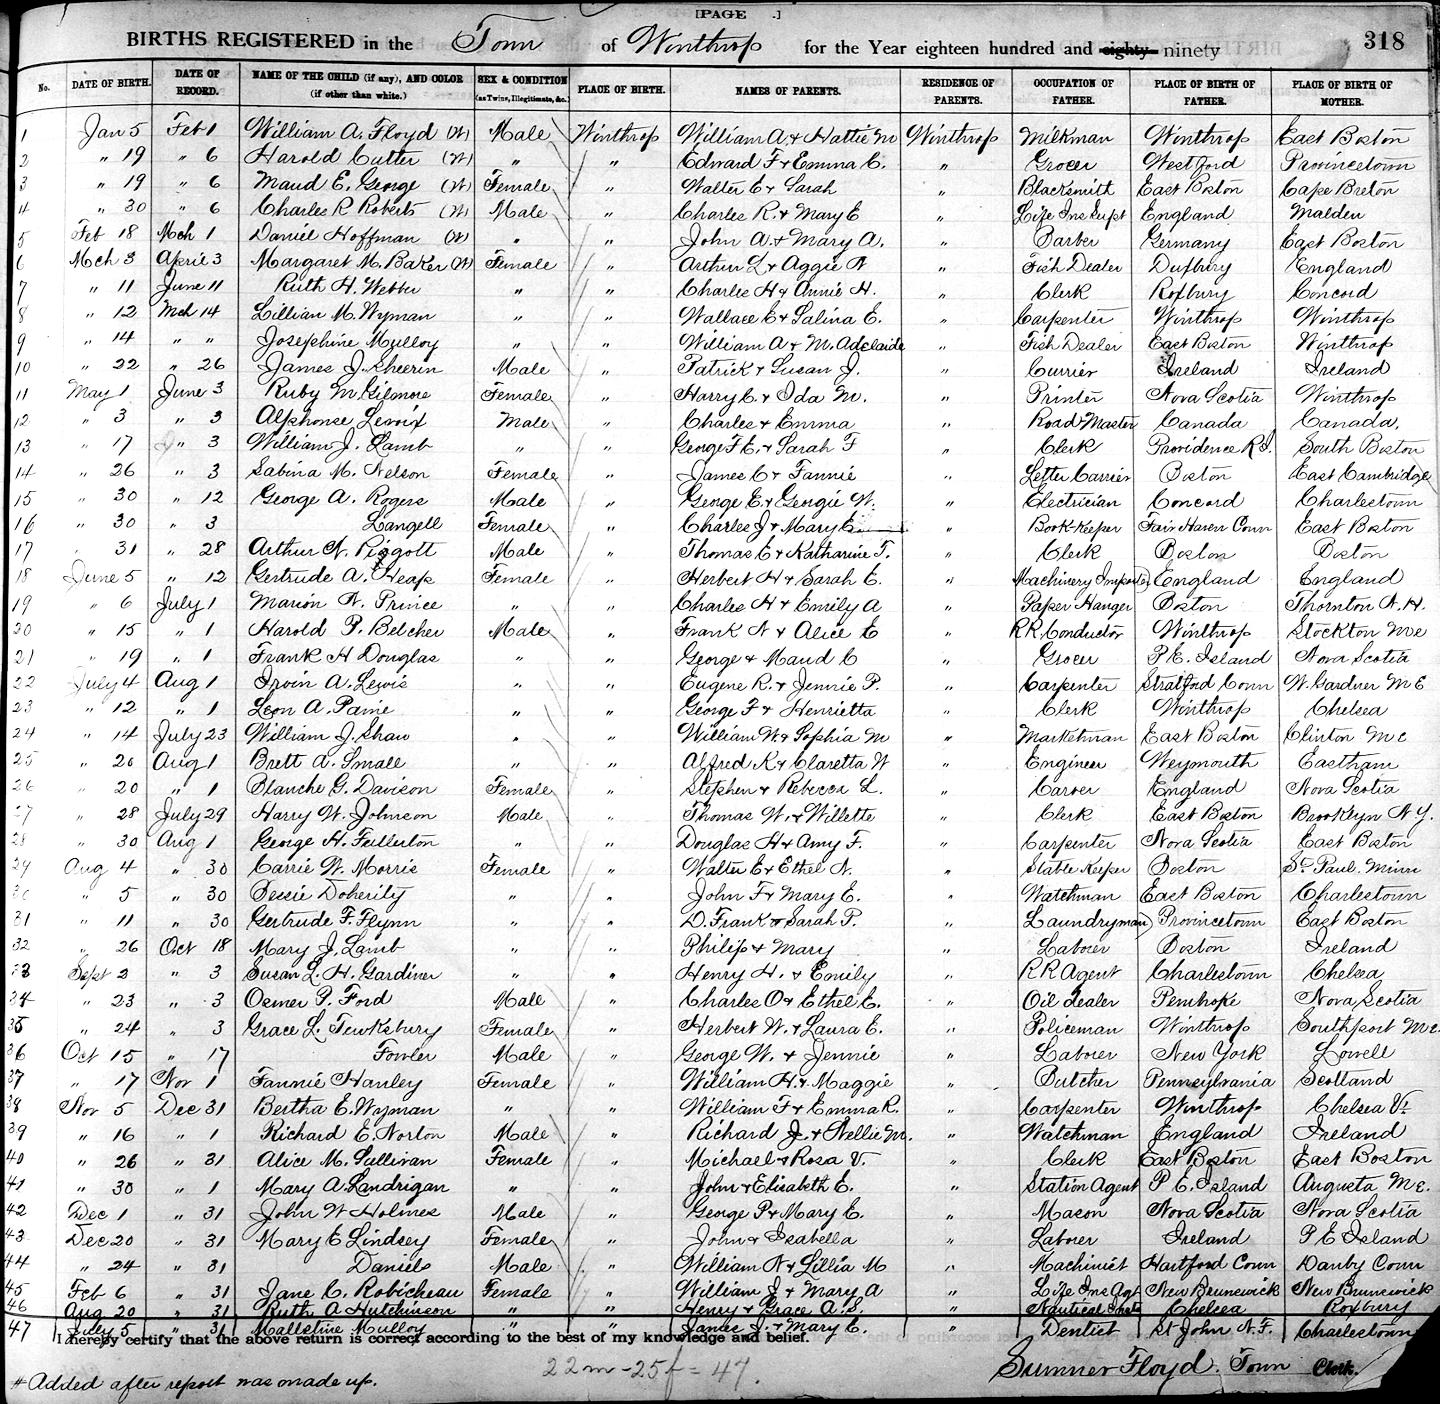 [PAGE .]
BIRTHS REGISTERED in the Town of Winthrop for the Year eighteen hundred and eighty ninety 318
No. DATE OF BIRTH. DATE OF RECORD. NAME OF THE CHILD (if any), AND COLOR (if other than white.) SEX & CONDITION (as Twins, Illegitimate, &c.) PLACE OF BIRTH. NAMES OF PARENTS. RESIDENCE OF PARENTS. OCCUPATION OF FATHER. PLACE OF BIRTH OF FATHER. PLACE OF BIRTH OF MOTHER.
1 Jan 5 Feb 1 William A. Floyd (W) Male Winthrop William A. & Hattie M Winthrop Milkman Winthrop East Boston
2 " 19 " 6 Harold Cutter (W) " " Edward F & Emma C. " Grocer Westford Provincetown
3 " 19 " 6 Maud E. George (W) Female " Walter E & Sarah " Blacksmith East Boston Cape Breton
4 " 30 " 6 Charles R Roberts (W) Male " Charles R. & Mary E " Life Ins Supt England Malden
5 Feb 18 Mch 1 Daniel Hoffman (W) " " John A. & Mary A. " Barber Germany East Boston
6 Mch 3 April 3 Margaret M. Baker (W) Female " Arthur L & Aggie N " Fish Dealer Duxbury England
7 " 11 June 11 Ruth H. Webber " " Charles H & Annie H. " Clerk Roxbury Concord
8 " 12 Mch 14 Lillian M. Wyman " " Wallace C & Salina E. " Carpenter Winthrop Winthrop
9 " 14 " " Josephine Mulloy " " William A & M. Adelaide " Fish Dealer East Boston Winthrop
10 " 22 " 26 James J. Sheerin Male " Patrick & Susan J. " Currier Ireland Ireland
11 May 1 June 3 Ruby M. Gilmore Female " Harry C. & Ida M. " Printer Nova Scotia Winthrop
12 " 3 " 3 Alphonse Leroix Male " Charles & Emma " Road Master Canada Canada,
13 " 17 " 3 William J. Lamb " " George F. E. & Sarah F " Clerk Providence R.I. South Boston
14 " 26 " 3 Sabina M. Nelson Female " James C & Fannie " Letter Carrier Boston East Cambridge
15 " 30 " 12 George A. Rogers Male " George E & Georgie W. " Electrician Concord Charlestown
16 " 30 " 3 Langell Female " Charles J & Mary E. " Book-Keeper Fair Haven Conn East Boston
17 " 31 " 28 Arthur N. Piggott Male " Thomas C & Katharine T. " Clerk Boston Boston
18 June 5 " 12 Gertrude A. Heap Female " Herbert H & Sarah E. " Machinery Importer England England
19 " 6 July 1 Marion N. Prince " " Charles H & Emily A " Paper Hanger Boston Thornton N.H.
20 " 15 " 1 Harold P. Belcher Male " Frank N & Alice E " RR Conductor Winthrop Stockton Me
21 " 19 " 1 Frank H Douglas " " George & Maud C " Grocer P.E. Island Nova Scotia
22 July 4 Aug 1 Irvin A. Lewis " " Eugene R. & Jennie P. " Carpenter Stratford Conn W. Gardner ME
23 " 12 " 1 Leon A. Paine " " George F & Henrietta " Clerk Winthrop Chelsea
24 " 14 July 23 William J. Shaw " " William W. & Sophia M " Marketman East Boston Clinton Me
25 " 20 Aug 1 Brett A. Small " " Alfred K & Claretta W " Engineer Weymouth Eastham
26 " 20 " 1 Blanche G. Davison Female " Stephen & Rebecca L. " Carver England Nova Scotia
27 " 28 July 29 Harry W. Johnson Male " Thomas W. & Willette " Clerk East Boston Brooklyn N.Y.
28 " 30 Aug 1 George H. Fullerton " " Douglas H & Amy F. " Carpenter Nova Scotia East Boston
29 Aug 4 " 30 Carrie W. Morris Female " Walter E & Ethel N. " Stable Keeper Boston St Paul. Minn
30 " 5 " 30 Bessie Doherity " " John F & Mary E. " Watchman East Boston Charlestown
31 " 11 " 30 Gertrude F. Flynn " " D. Frank & Sarah P. " Laundryman Provincetown East Boston
32 " 26 Oct 18 Mary J. Lamb " " Philip & Mary " Laborer Boston Ireland
33 Sept 2 " 3 Susan L. H. Gardiner " " Henry H. & Emily " RR Agent Charlestown Chelsea
34 " 23 " 3 Osmer P. Ford Male " Charles O & Ethel E. " Oil dealer Pembroke Nova Scotia
35 " 24 " 3 Grace L. Tewksbury Female " Herbert W. & Laura E. " Policeman Winthrop Southport Me.
36 Oct 15 " 17 Fowler Male " George W. & Jennie " Laborer New York Lowell
37 " 17 Nov 1 Fannie Hanley Female " William H. & Maggie " Butcher Pennsylvania Scotland
38 Nov 5 Dec 31 Bertha E. Wyman " " William F & Emma R. " Carpenter Winthrop Chelsea Vt
39 " 16 " 1 Richard E. Norton Male " Richard J. & Nellie M. " Watchman England Ireland
40 " 26 " 31 Alice M. Sullivan Female " Michael & Rosa V. " Clerk East Boston East Boston
41 " 30 " 1 Mary A. Landrigan " " John & Elisabeth E. " Station Agent P. E. Island Augusta Me.
42 Dec 1 " 31 John W Holmes Male " George P & Mary E. " Mason Nova Scotia Nova Scotia
43 Dec 20 " 31 Mary E Lindsey Female " John & Isabella " Laborer Ireland P E Island
44 " 24 " 31 Daniels Male " William N & Lillia M " Machinist Hartford Conn Danby Conn
45 Feb 6 " 31 Jane C. Robicheau Female " William J & Mary A " Life Ins Agt New Brunswick New Brunswick
46 Aug 20 " 31 Ruth A Hutchinson " " Henry & Grace A. S. " Nautical Insts Chelsea Roxbury
47 July 5 " 31 Mallstine Mulloy " " James J. & Mary E. " Dentist St John N.F. Charlestown
I hereby certify that the above return is correct according to the best of my knowledge and belief.
22 m - 25 f = 47.
Sumner Floyd. Town Clerk.
# Added after report was made up.